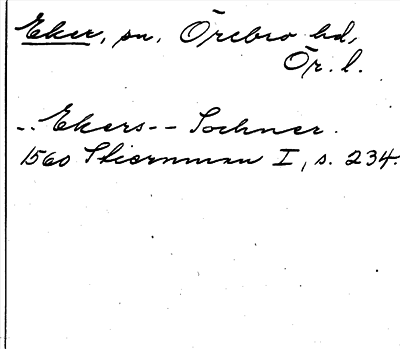 Eker, sn, Örebro hd,
Ör. l.
-- Ekers -- Sochner.
1560 Stiernman I, s. 234.